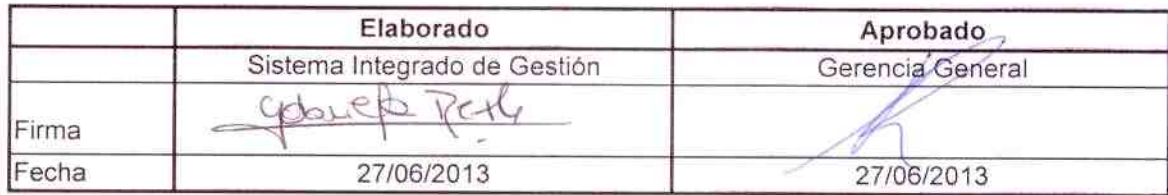 Elaborado Aprobado
Sistema Integrado de Gestión Gerencia General
Firma
Fecha 27/06/2013 27/06/2013